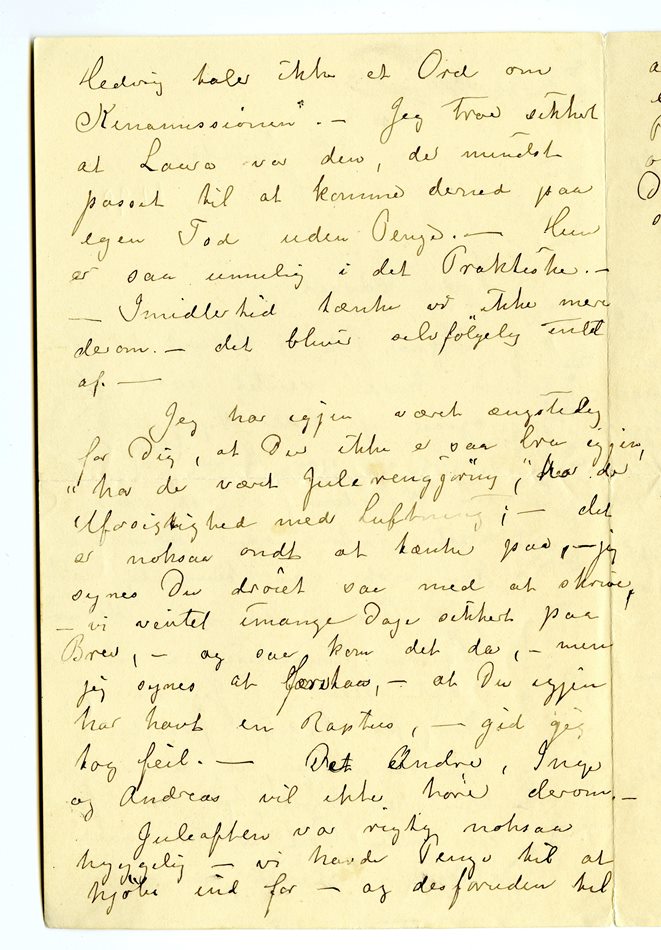 Hedvig taler ikke et Ord om
Kinamissionen". – Jeg troe sikkert
at Laura var den, der mindst
passet til at komme derned paa
egen Tod uden Penge. – Hun
er saa umulig i det Praktiske. –
– Imidlertid tænke vi ikke mere
derom. – det bliver selvfölgelig intet
af. –
Jeg har igjen været ængstelig
for Dig, at Du ikke er saa bra igjen,
"har de været Julerengjöring", har de
Uforsigtighed med Luftning; – det
er noksaa ondt at tænke paa, – jeg
synes Du dröiet saa med at skrive,
– vi ventet i mange Dage sikkert paa
Brev, – og saa kom det da, – men
jeg synes at forstaa, – at Du igjen
har havt en Raptus, – gid jeg
tog feil. – Det Andre, Inga
og Andreas vil ikke höre derom. –
Juleaften var rigtig noksaa
hyggelig – vi havde Penge til at
kjöbe ind for – og desforuden til
a
e
D